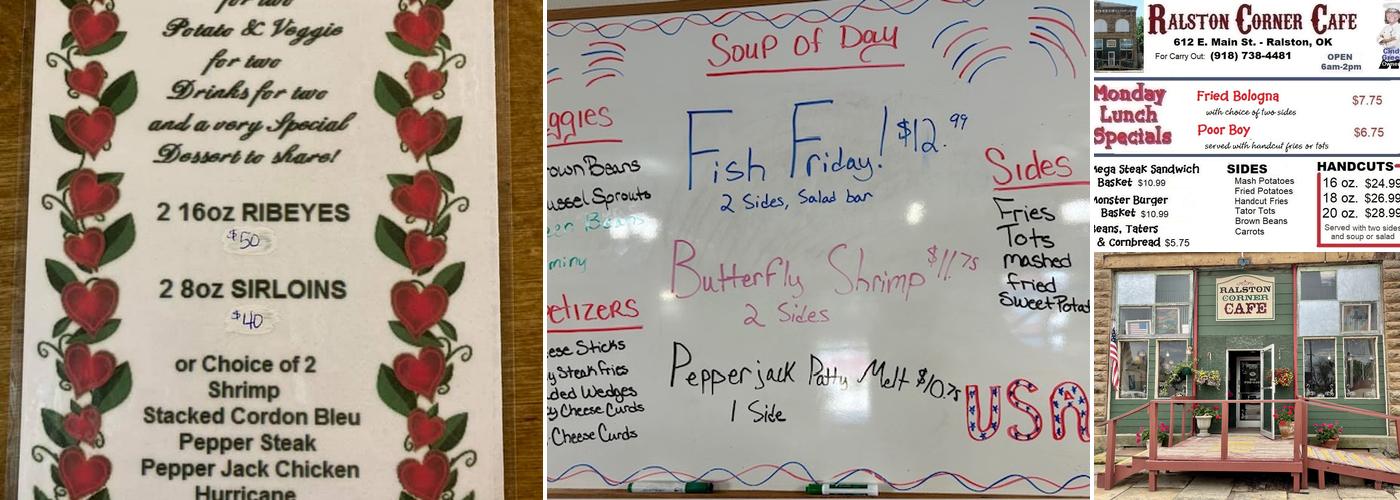 for two
Potato & Veggie
for two
Drinks for two
and a very Special
Dessert to share!
2 16oz RIBEYES
$50
2 8oz SIRLOINS
$40
or Choice of 2
Shrimp
Stacked Cordon Bleu
Pepper Steak
Pepper Jack Chicken
Hurricane
Soup Of Day
ggies
own Beans
ussel Sprouts
een Beans
miny
etizers
ese Sticks
y Steak fries
ded Wedges
y Cheese Curds
Cheese Curds
Fish Friday! $12.99
2 Sides, Salad bar
Butterfly Shrimp $11.75
2 Sides
Pepperjack Patty Melt $10.75
1 Side
Sides
Fries
Tots
mashed
fried
Sweet Potat
USA
RALSTON CORNER CAFE
612 E. Main St. - Ralston, OK
For Carry Out: (918) 738-4481
OPEN
6am-2pm
Owner
Monday
Lunch
Specials
Fried Bologna $7.75
with choice of two sides
Poor Boy $6.75
served with handcut fries or tots
ega Steak Sandwich
Basket $10.99
onster Burger
Basket $10.99
eans, Taters
& Cornbread $5.75
SIDES
Mash Potatoes
Fried Potatoes
Handcut Fries
Tator Tots
Brown Beans
Carrots
HANDCUTS
16 oz. $24.99
18 oz. $26.99
20 oz. $28.99
Served with two sides
and soup or salad
RALSTON
CORNER
CAFE